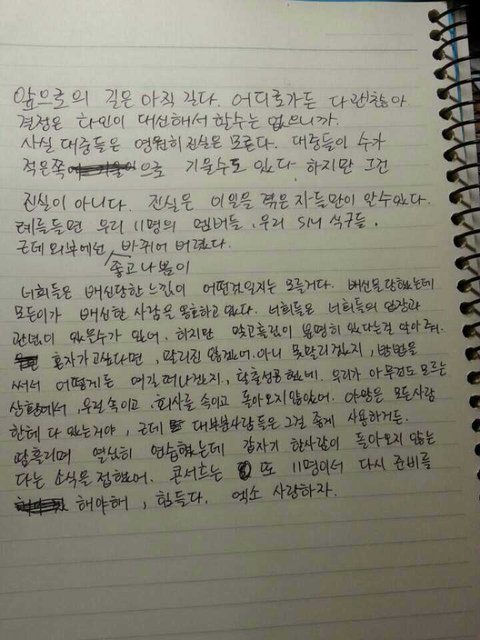 앞으로의 길은 아직 길다. 어디로가든 다 괜찮아
결정은 타인이 대신해서 할수는 없으니까.
사실 대중들은 영원히 진실은 모른다. 대중들이 수가
적은쪽으로 기울수도 있다 하지만 그건
진실이 아니다. 진실은 이일을 겪은 자들만이 안수있다.
예를들면 우리 11명의 멤버들, 우리 SM 식구들.
근데 외부에선 바뀌어 버렸다.
좋고 나쁨이
너희들은 배신당한 느낌이 어떤것일지는 모를거다. 배신을 당했는데
모든이가 배신한 사람을 옹호하고 있다. 너희들은 너희들의 입장과
관념이 있을수가 있어. 하지만 맞고틀림이 분명히 있다는걸 알아줘.
혼자가고싶다면, 말리진 않겠어. 아니 못말리겠지, 방법을
써서 어떻게든 여길 떠나겠지, 탈출성공했네. 우리가 아무것도 모르는
상황에서, 우릴 속이고, 회사를 속이고 돌아오지않았어. 야망은 모든사람
한테 다 있는거야, 근데 대부분사람들은 그걸 좋게 사용하거든.
땀흘리며 열심히 연습했는데 갑자기 한사람이 돌아오지 않는
다는 소식을 접했어. 콘서트는 또 11명이서 다시 준비를
해야해, 힘들다. 엑소 사랑하자.